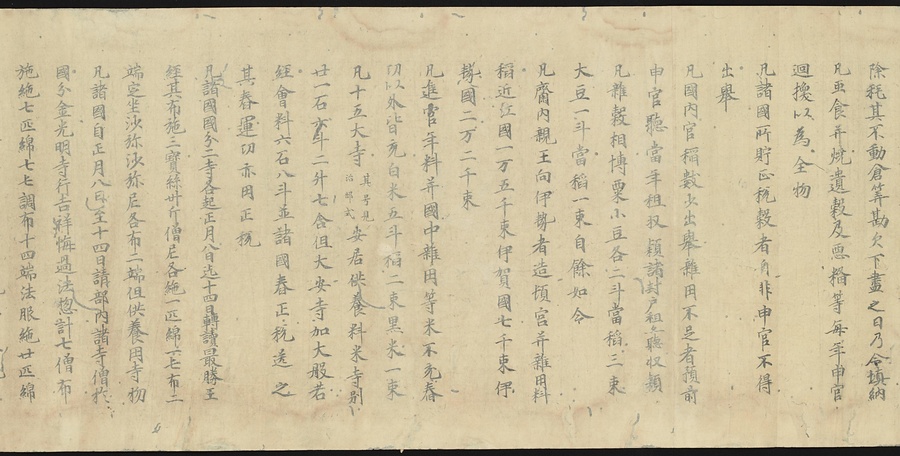 除耗其不動倉等勘欠下畫之日乃令塡納
凡虫食幷燒遺穀及惡稻等每年申官
廻換以爲全物
凡諸國所貯正稅穀者自非申官不得
出擧
凡國內官稻數少出擧雜用不足者預前
申官聽當年租収穎諸封戶租並聽収穎
凡雜穀相博粟小豆各二斗當稻三束
大豆一斗當稻一束自餘如令
凡齋內親王向伊勢者造頓宮幷雜用料
稻近江國一万五千束伊賀國七千束伊
勢國二万二千束
凡進官年料幷國中雜用等米不充舂
功以外皆充白米五斗稻二束黑米一束
凡十五大寺其号見治部式安居供養料米寺別
廿一石六斗二升七合但大安寺加大般若
經會料六石八斗並諸國舂正稅送之
其舂運功亦用正稅
凡諸國國分二寺各起正月八日迄十四日轉讀最勝王
經其布施三寶絲卅斤僧尼各絁一疋綿一屯布二
端定坐沙弥沙弥尼各布二端但供養用寺物
凡諸國自正月八日至十四日請部內諸寺僧於
國分金光明寺行吉祥悔過法惣計七僧布
施絁七疋綿七屯調布十四端法服絁廿疋綿